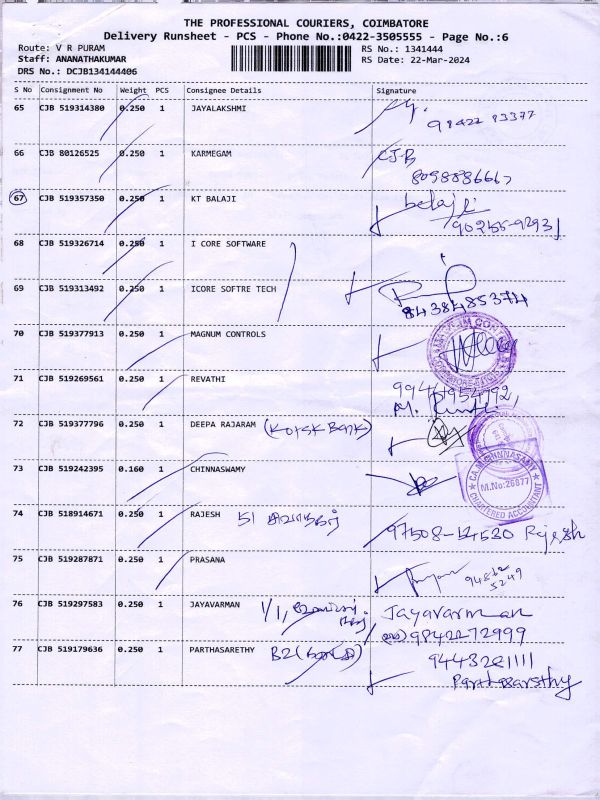 THE PROFESSIONAL COURIERS, COIMBATORE
Delivery Runsheet - PCS - Phone No.:0422-3505555 - Page No.:6
Route: V R PURAM RS No.: 1341444
Staff: ANANATHAKUMAR RS Date: 22-Mar-2024
DRS No.: DCJB134144406
S No Consignment No Weight PCS Consignee Details Signature
65 CJB 519314380 0.250 1 JAYALAKSHMI
98422 83377
66 CJB 80126525 0.250 1 KARMEGAM CJB
8098886667
67 CJB 519357350 0.250 1 KT BALAJI belaji
90255-92931
68 CJB 519326714 0.250 1 I CORE SOFTWARE
69 CJB 519313492 0.250 1 ICORE SOFTRE TECH
8438485374
70 CJB 519377913 0.250 1 MAGNUM CONTROLS
71 CJB 519269561 0.250 1 REVATHI
72 CJB 519377796 0.250 1 DEEPA RAJARAM (Kotak Bank)
73 CJB 519242395 0.160 1 CHINNASWAMY
CA.M.CHINNASAMY
M.No:26877
CHARTERED ACCOUNTANT
74 CJB 518914671 0.250 1 RAJESH 51 97508-14530 Rajesh
75 CJB 519287871 0.250 1 PRASANA
76 CJB 519297583 0.250 1 JAYAVARMAN 1/1, Jayavarman
9842272999
77 CJB 519179636 0.250 1 PARTHASARETHY B2 9443201111
Parthasarathy